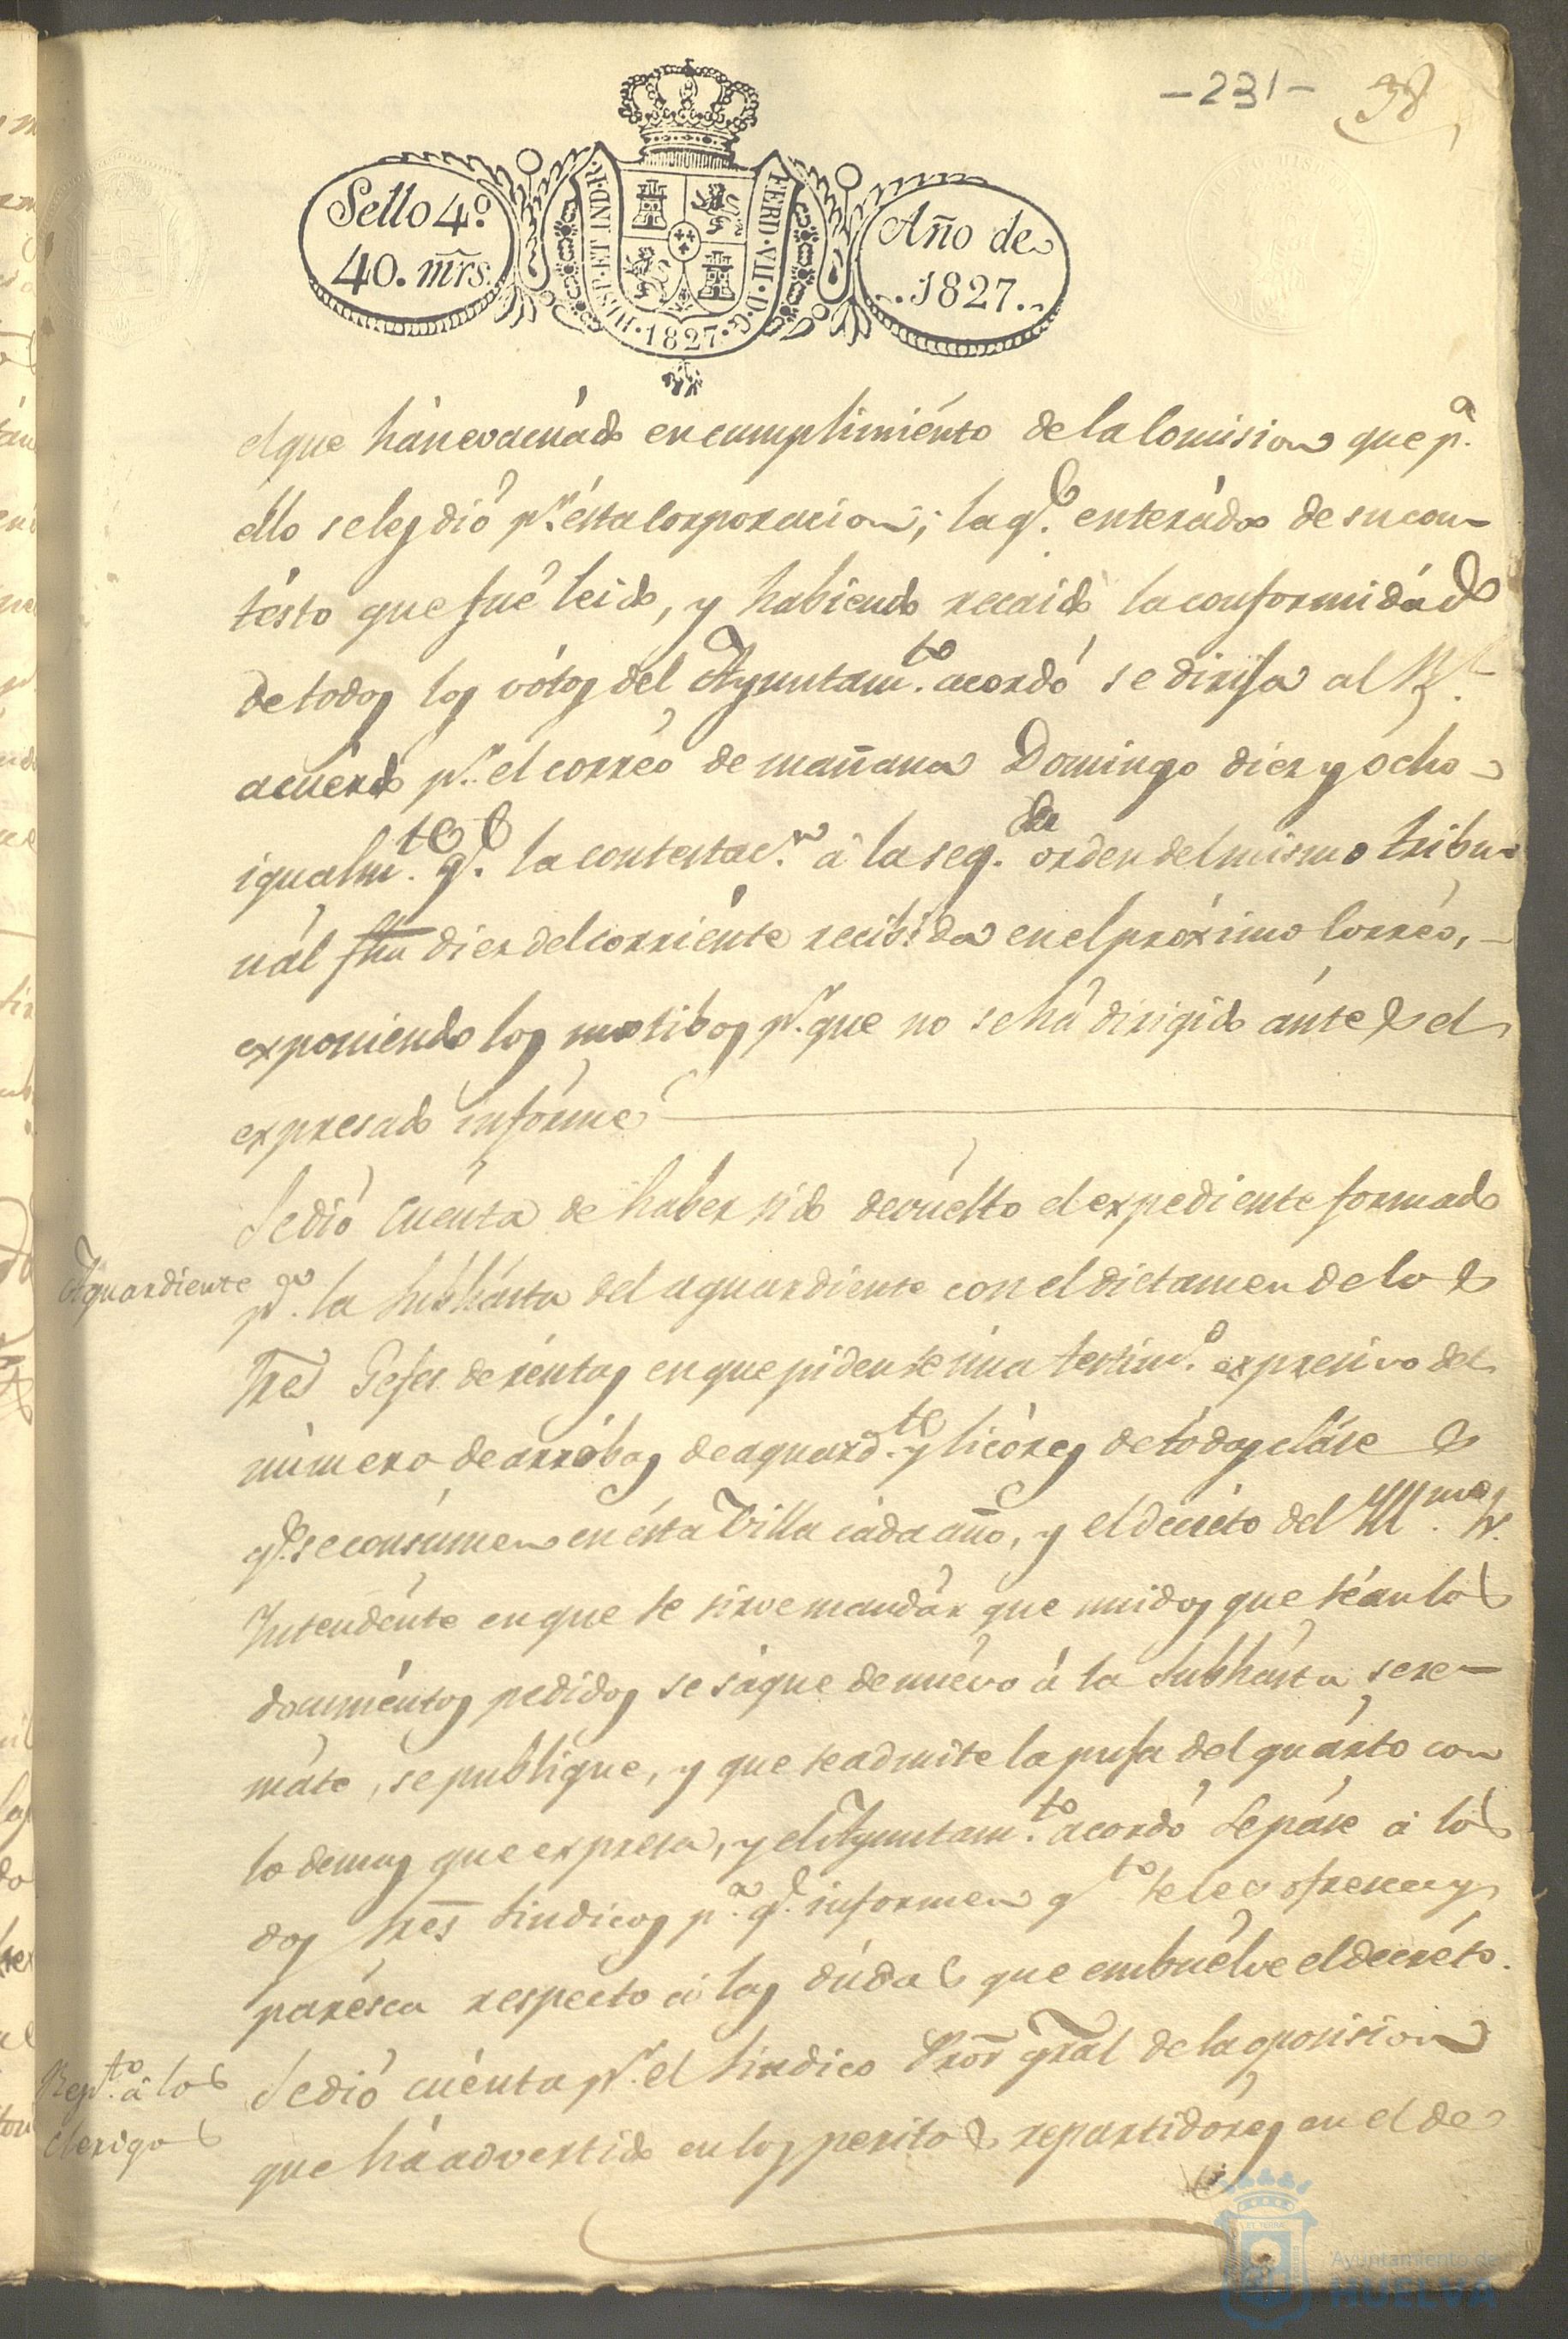 -231- 38
Sello 4º
40. mrs.
HISP. ET IND. R.
FERD. VII. D. G.
1827.
Año de
1827.
el que hán evacuádo en cumplimiénto de la Comision que pª
éllo se les dió pr ésta Corporacion; la q.e enterádos de su con-
tésto que fué leido, y habiendo recaido la conformidád
de todos los vótos del Ayuntam.to acordó se dirija al Rl
acuérdo pr el corréo de mañana Domingo diez y ocho
igualm.te q.e la contestac.n á la seg.da orden del mismo tribu-
nál fha diez del corriénte recibida en el próximo Corréo,
exponiendo los motibos pr que no se há dirigido ántes el
expresado infórme
Se dió cuénta de haber sido devuélto el expediente formado
Aguardiente
pª la Subhásta del aguardiente con el dictamen de los
Sres Gefes de réntas en que piden se úna testim.o expresivo del
número de arróbas de aguard.te y licóres de tódas cláse s
q.e se consúmen en ésta Villa cáda año, y el decréto del Yll.mo Sr.
Yntendénte en que se sirve mandár que unidos que séan los
documéntos pedidos se sáque de nuévo á la Subhásta se re-
máte, se publíque, y que se admite la puja del quárto con
lo demas que expresa, y el Ayuntam.to acordó se páse á los
dos Sres Sindicos pª q.e informen q.to se les ofresca y
parésca respecto á las dúdas que embuélve el decréto.
Rep.to á los
Clerigos
Se dió cuénta pr el Sindico Pror gral de la oposision
que há advertido en los peritos repartidóres en el de
Ayuntamiento de
HUELVA